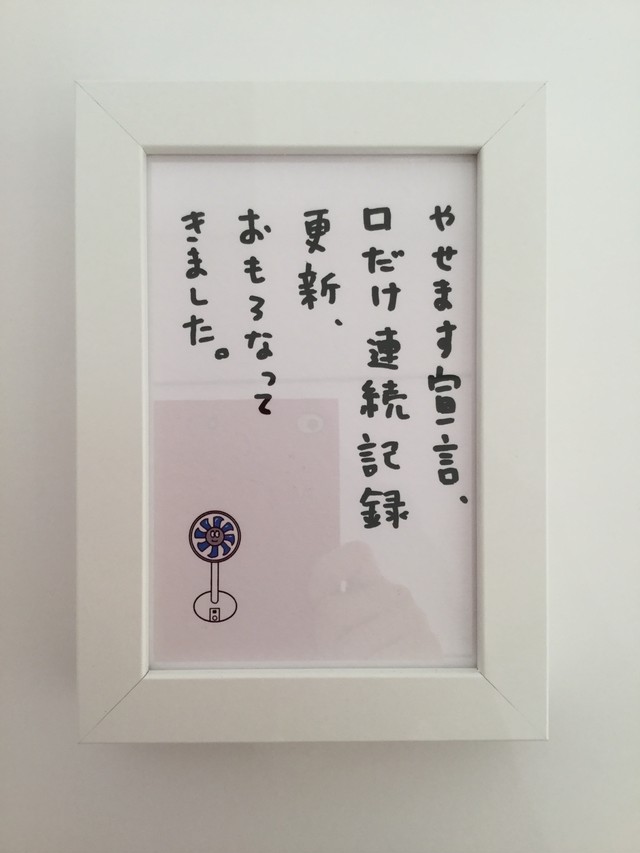 やせます宣言、
口だけ連続記録
更新、
おもろなって
きました。